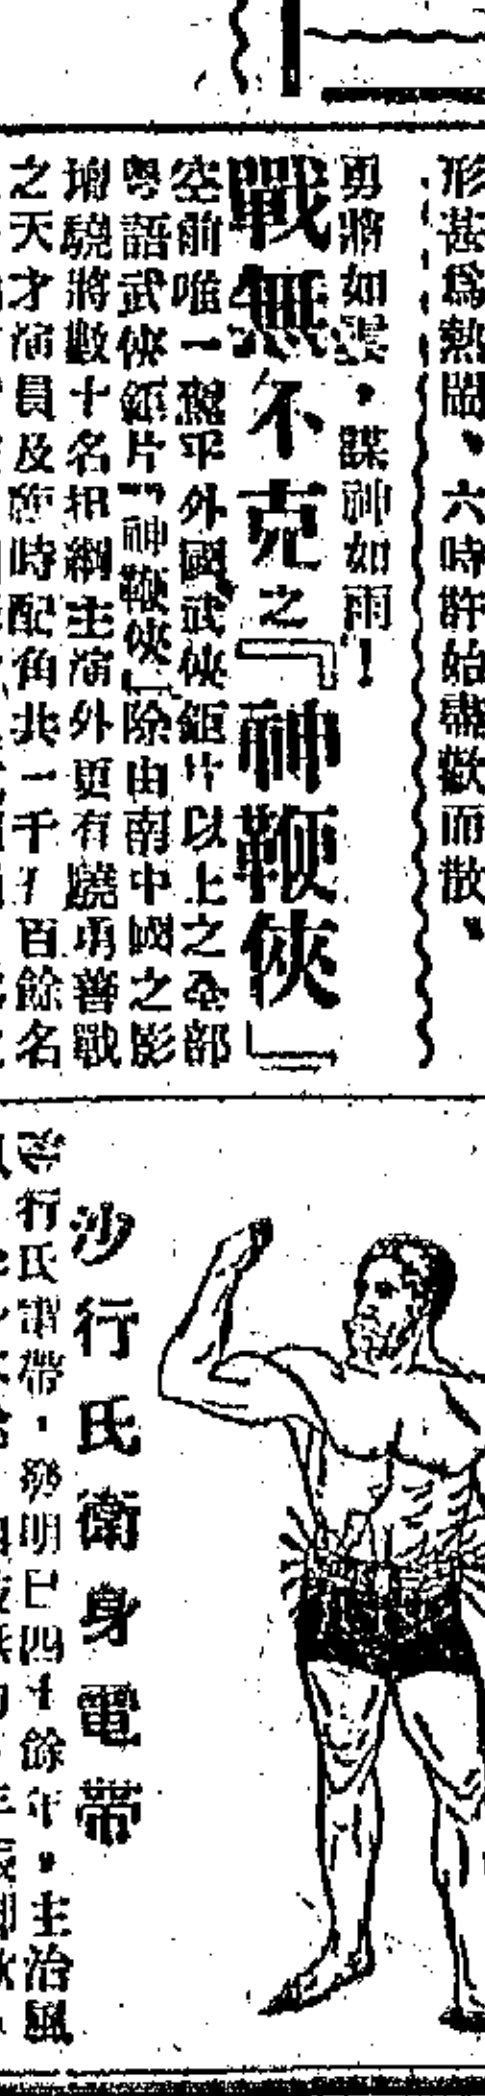 形甚為熱鬧、六時許始盡歡而散。
勇將如雲，謀神如雨！
戰無不克之『神鞭俠』
空前唯一壓平外國武俠鉅片以上之全部
粵語武俠鉅片『神鞭俠』除由南中國之影
壇驍將數十名担綱主演外更有驍勇善戰
之天才演員及臨時配角共一千百餘名
沙行氏衛身電帶
行氏電帶，發明已四十餘年，主治風